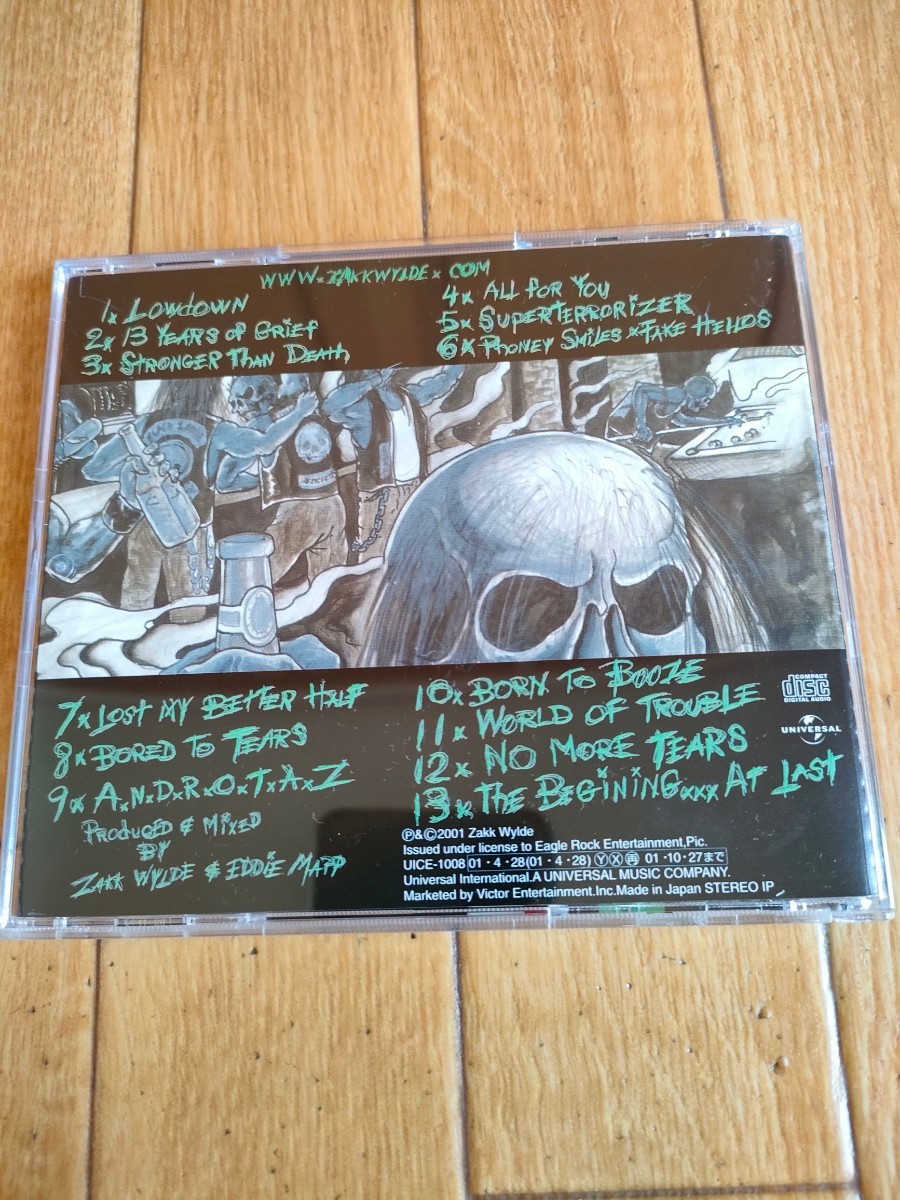 WWW.ZAKKWYLDE.COM
1x LOWDOWN
2x 13 YEARS OF GRIEF
3x STRONGER THAN DEATH
4x ALL FOR YOU
5x SUPERTERRORIZER
6x PHONEY SMILES x FAKE HELLOS
SOCIETY
7x LOST MY BETTER HALF
8x BORED TO TEARS
9x A.N.D.R.O.T.A.Z
PRODUCED & MIXED
BY
ZAKK WYLDE & EDDIE MAPP
10x BORN TO BOOZE
11x WORLD OF TROUBLE
12x NO MORE TEARS
13x THE BEGINING...AT LAST
COMPACT
disc
DIGITAL AUDIO
UNIVERSAL
Ⓟ&©2001 Zakk Wylde
Issued under license to Eagle Rock Entertainment,Plc.
UICE-1008 01・4・28(01・4・28) Ⓨ Ⓧ 再 01・10・27まで
Universal International.A UNIVERSAL MUSIC COMPANY.
Marketed by Victor Entertainment.Inc.Made in Japan STEREO IP